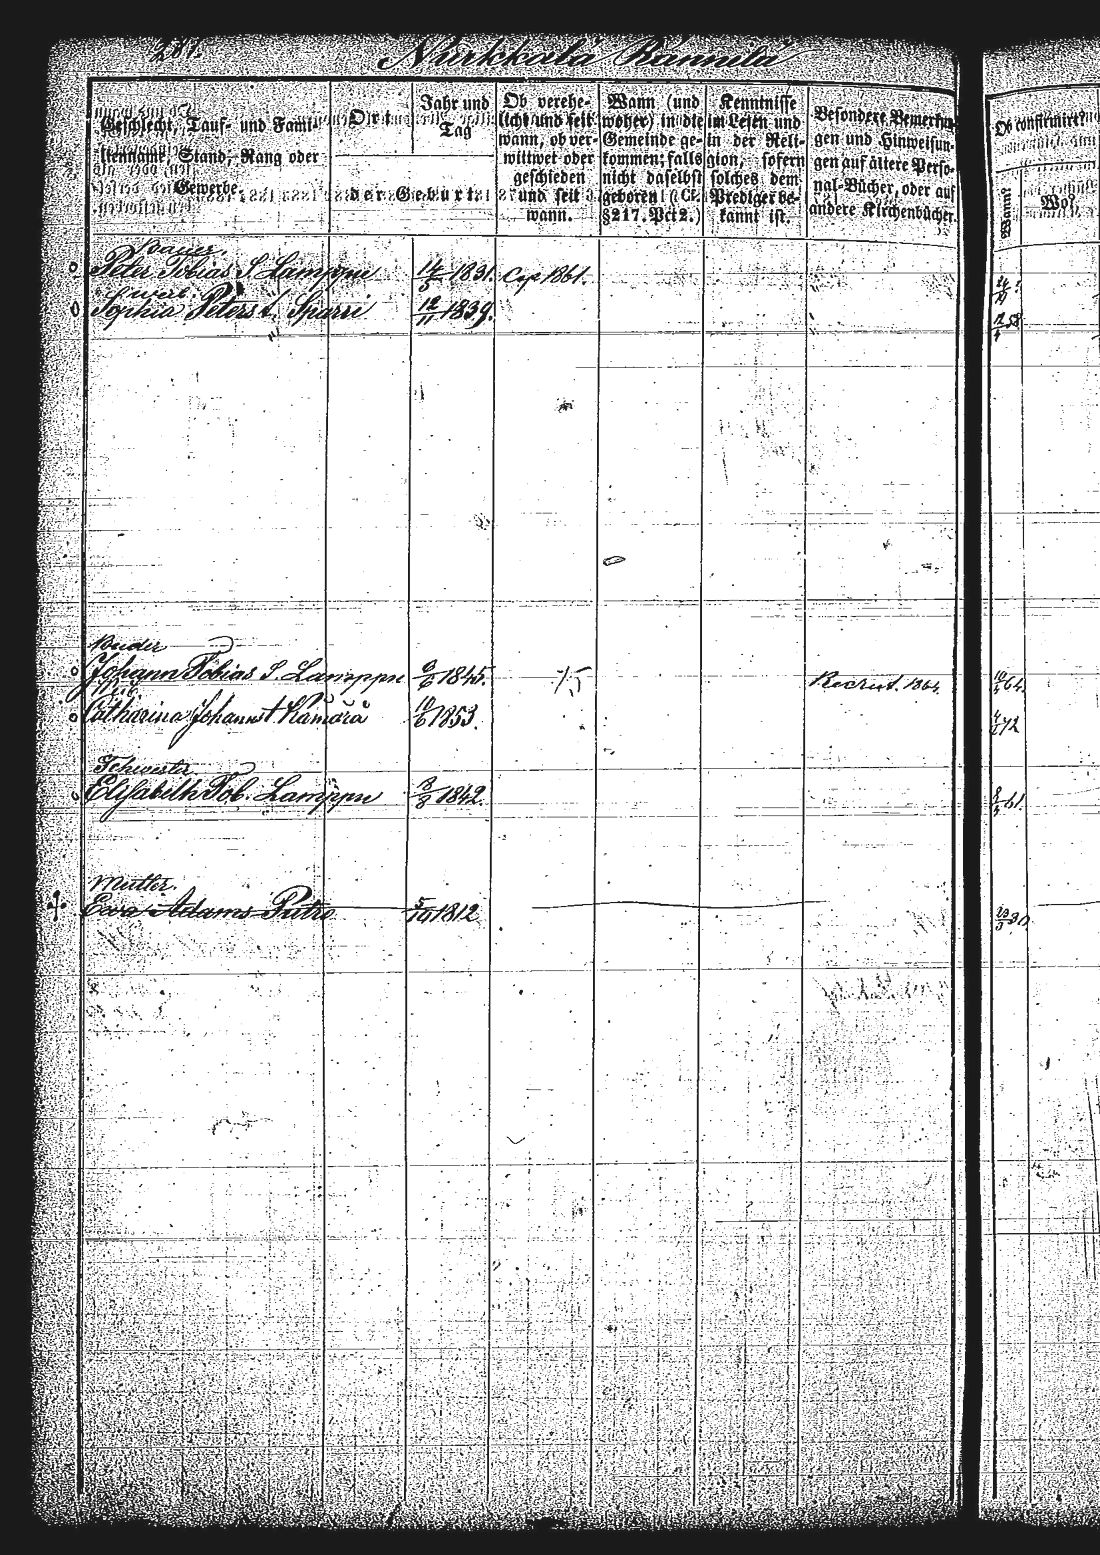 281.
Nurkkala Rannila
Geschlecht, Tauf- und Fami-
lienname, Stand, Rang oder
Gewerbe.
Ort
Jahr und
Tag
der Geburt.
Ob verehe-
licht und seit
wann, ob ver-
wittwet oder
geschieden
und seit
wann.
Wann (und
woher) in die
Gemeinde ge-
kommen; falls
nicht daselbst
geboren! (Cf.
§ 217. Pct 2.)
Kenntnisse
im Lesen und
in der Reli-
gion, sofern
solches dem
Prediger be-
kannt ist.
Besondere Bemerkun-
gen und Hinweisun-
gen auf ältere Perso-
nal-Bücher, oder auf
andere Kirchenbücher.
Ob confirmirt?
Wann?
Wo?
Bauer.
Peter Tobias S. Lamppu 1831. Cop 1861.
Weib.
Sophia Peters t. Sparri 12/11 1839. 58
Bruder
Johann Tobias S. Lamppu 1845. Recrut. 1864. 64.
Weib.
Catharina Johanns t. Kämärä 10/6 1853. 72
Schwester
Elisabeth Tob. Lamppu 1842. 61.
Mutter.
Ewa Adams Putro 5/10 1812 30.